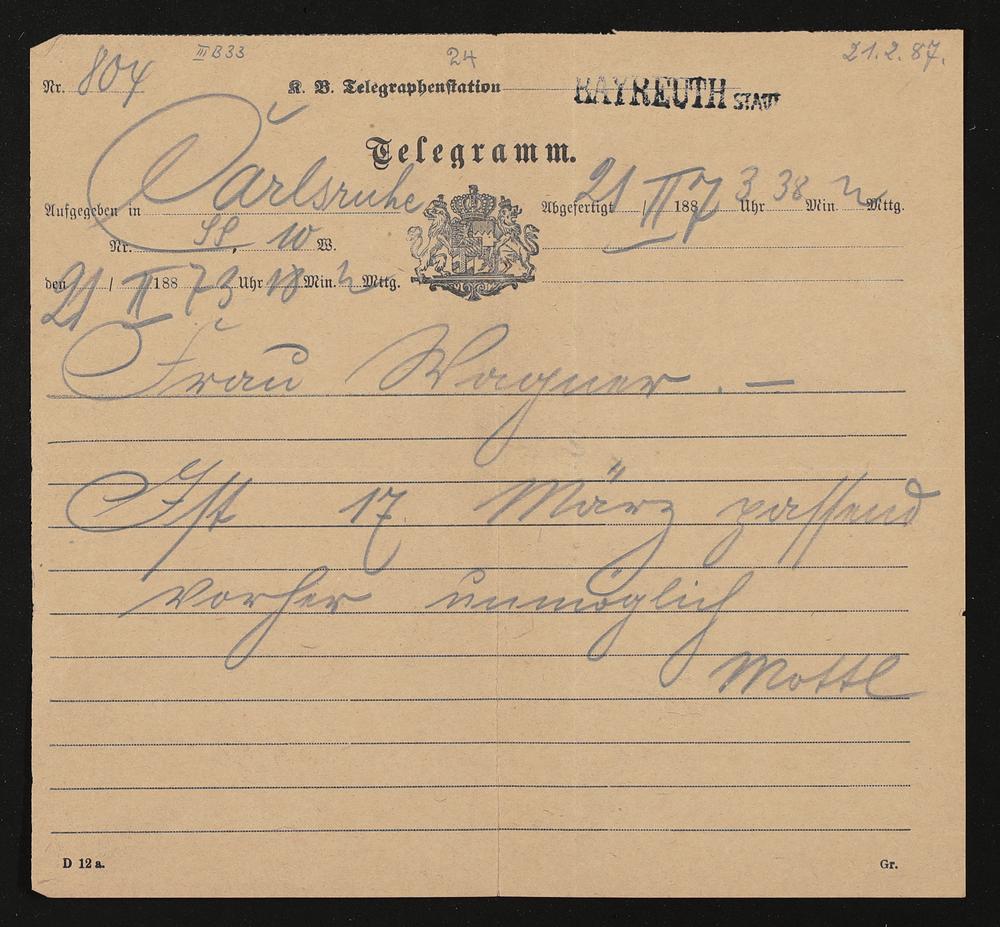 III B 33
24
21.2.87.
Nr. 804 K. B. Telegraphenstation BAYREUTH STADT
Telegramm.
Aufgegeben in Carlsruhe
Nr. 10 W.
den 21/II 1887 3 Uhr 18 Min. n Mttg.
Abgefertigt 21/II 1887 3 Uhr 38 Min. n Mttg.
Frau Wagner. —
Ist 17 März passend
vorher unmöglich
Mottl
D 12 a. Gr.